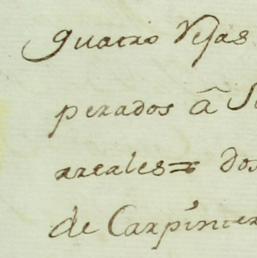 quatro Vejas
perados â
arreales = dos
de Carpinter